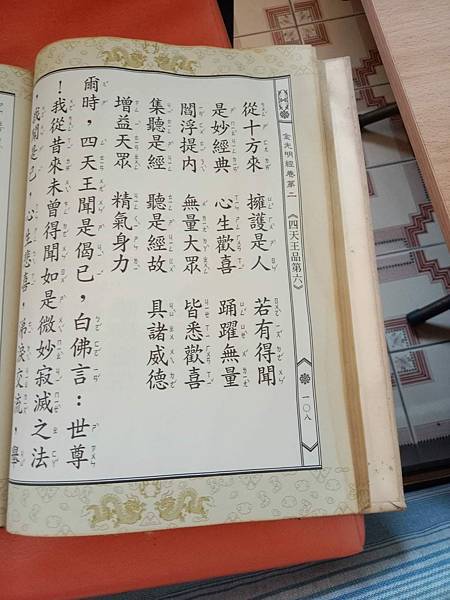 金光明經卷第二 《四天王品第六》 一○八
從十方來 擁護是人 若有得聞
是妙經典 心生歡喜 踊躍無量
閻浮提內 無量大眾 皆悉歡喜
集聽是經 聽是經故 具諸威德
增益天眾 精氣身力
爾時，四天王聞是偈已，白佛言：世尊
！我從昔來未曾得聞如是微妙寂滅之法
，我聞是已，心生悲喜，涕淚交流，舉